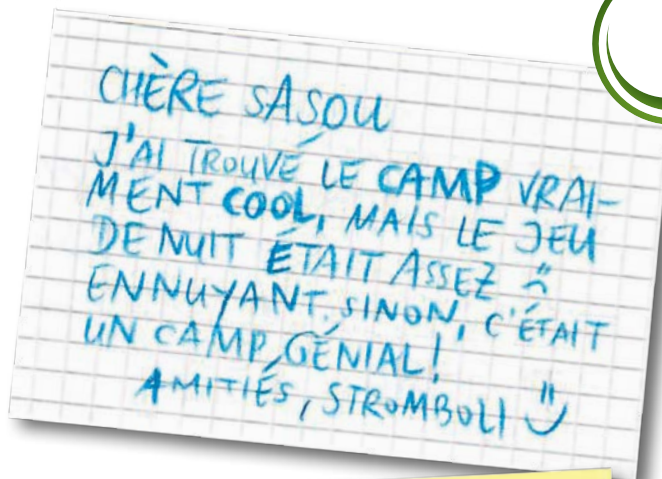 CHÈRE SASOU
J'AI TROUVÉ LE CAMP VRAI-
MENT COOL, MAIS LE JEU
DE NUIT ÉTAIT ASSEZ
ENNUYANT. SINON, C'ÉTAIT
UN CAMP GÉNIAL!
AMITIÉS, STROMBOLI